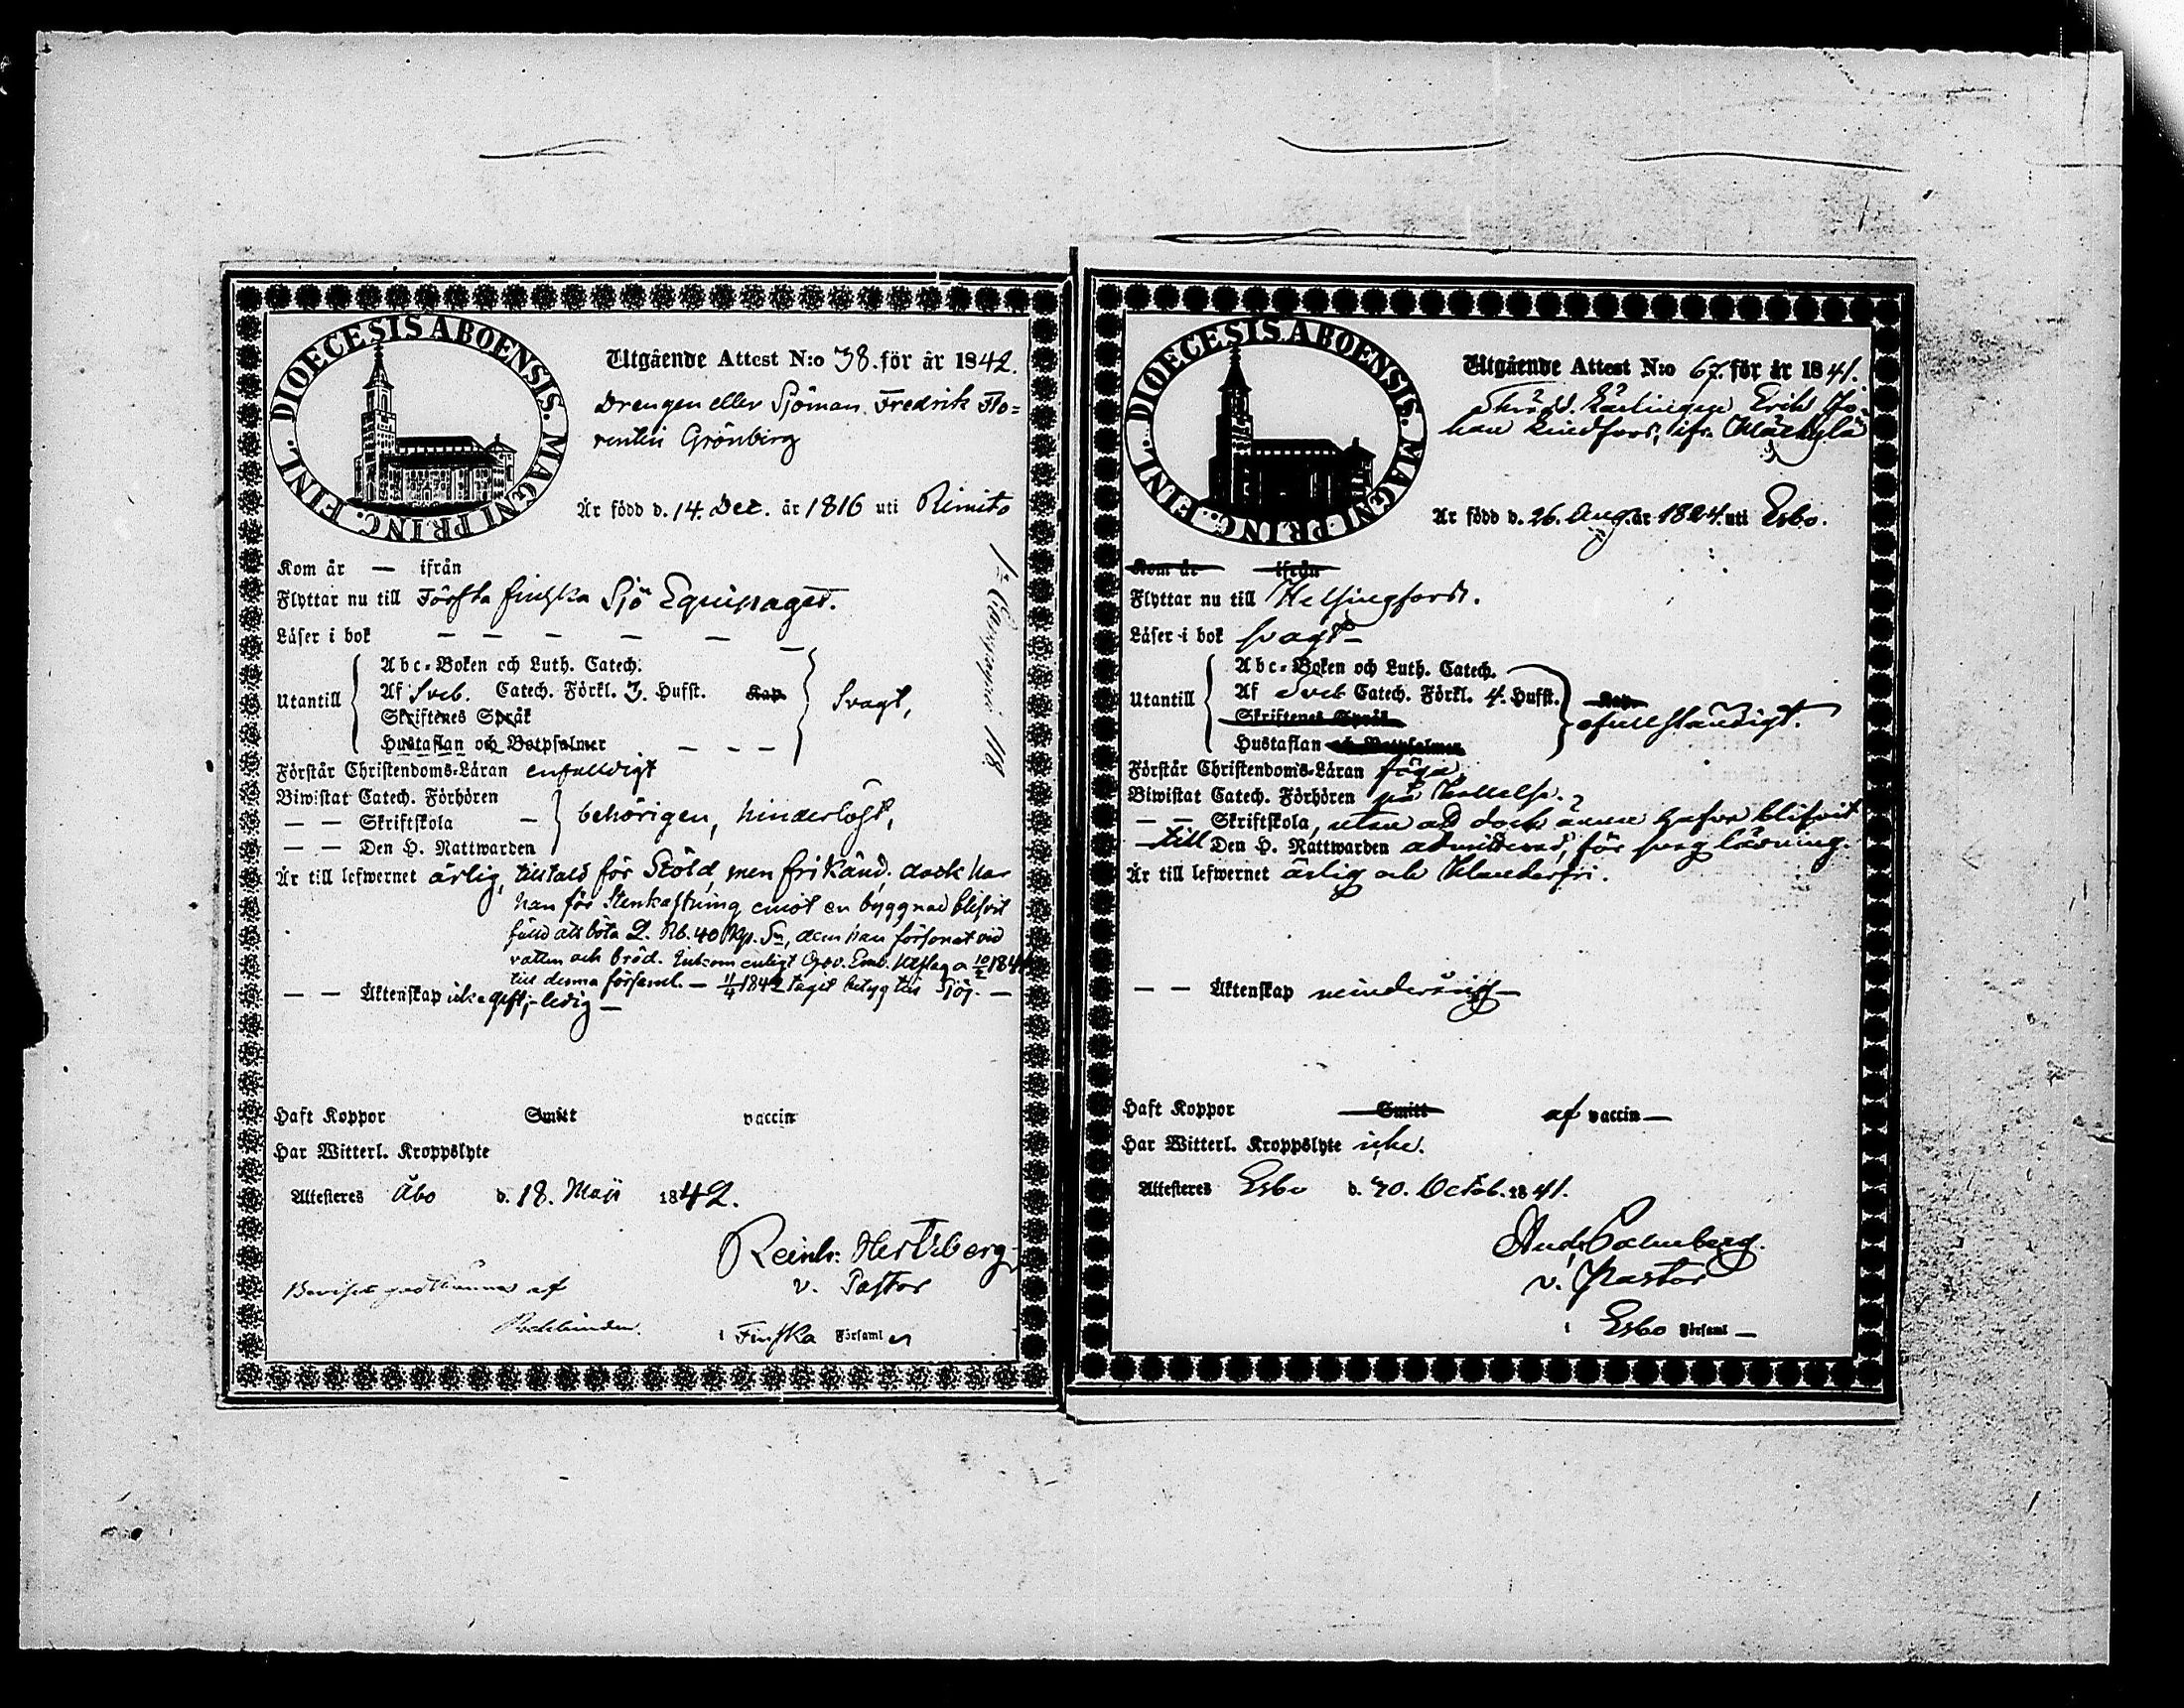 DIOECESIS ABOENSIS. MAGNI PRINC. FINL.
Utgående Attest N:o 38. för år 1842.
Drengen eller Sjöman Fredrik Flo=
rentin Grönberg
Är född d. 14. Dec. år 1816 uti Rimito
Kom år — ifrån
Flyttar nu till Första finska Sjö Equipaget.
Läser i bok — — — — —
Utantill
Abc-Boken och Luth. Catech.
Af Sveb. Catech. Förkl. 3. Hufst. Kap. Svagt,
Skriftenes Språk
Hustaflan och Botpsalmer — — —
Förstår Christendoms-Läran enfaldigt
Biwistat Catech. Förhören
— — Skriftskola — behörigen, hinderlöst,
— — Den H. Nattwarden
Är till lefwernet ärlig, tilltald för Stöld, men frikänd; dock har
han för Stenkastning emot en byggnad blifvit
fälld att böta 2. Rb. 40 Kop. Sr, dem han försonat vid
vatten och bröd. Inkom enligt Guv. Emb. Utslag a 10/2 184
till denna församl. — 11/4 1842 taget betyg till Sjöj. —
— — Äktenskap icke gift, ledig —
1 Compagni 118
Haft Koppor Smitt vaccin
Har Witterl. Kroppslyte
Attesteres Åbo d. 18. Maji 1842.
Reinh: Hertzberg
v. Pastor
Beviset godkännes af
i Finska Församl en
DIOECESIS ABOENSIS. MAGNI PRINC. FINL.
Utgående Attest N:o 67. för år 1841.
Skrädd. Lärlingen Erik Jo-
han Lindfors, ifr. Mäkkylä
Är född d. 26. Aug. år 1824. uti Esbo.
Kom år ifrån
Flyttar nu till Helsingfors.
Läser i bok svagt —
Utantill
Abc-Boken och Luth. Catech.
Af Sveb Catech. Förkl. 4. Hufst. Kap. ofullständigt.
Skriftenes Språk
Hustaflan och Botpsalmer
Förstår Christendoms-Läran föga.
Biwistat Catech. Förhören på kallelse.
— — Skriftskola, utan att dock ännu hafva blifvit
— till Den H. Nattwarden admitterad, för svag läsning.
Är till lefwernet ärlig och klanderfri.
— — Äktenskap minderårig —
Haft Koppor Smitt af vaccin —
Har Witterl. Kroppslyte icke.
Attesteres Esbo d. 30. Octob. 1841.
And. Palmberg.
v. Pastor
i Esbo Församl —